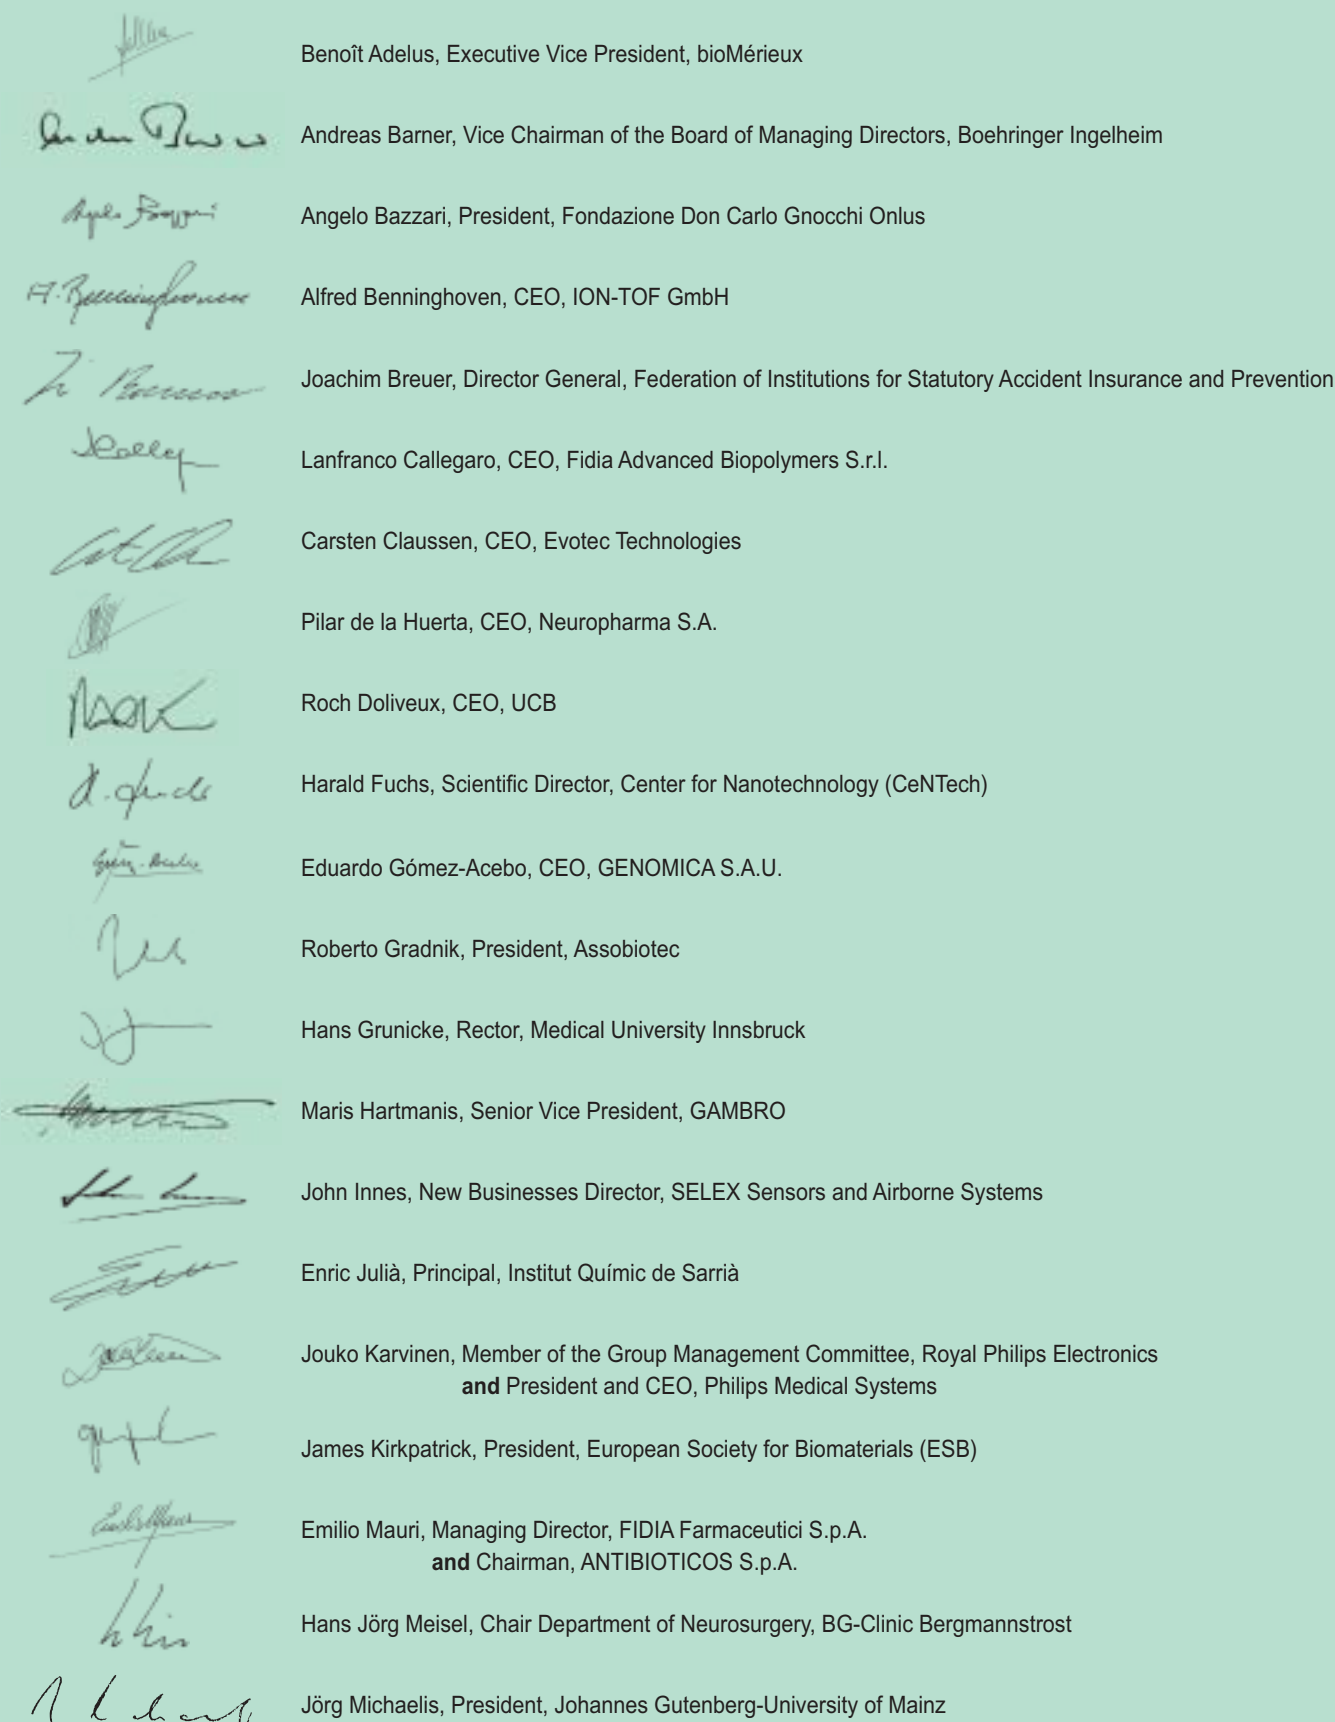 Benoît Adelus, Executive Vice President, bioMérieux
Andreas Barner, Vice Chairman of the Board of Managing Directors, Boehringer Ingelheim
Angelo Bazzari, President, Fondazione Don Carlo Gnocchi Onlus
Alfred Benninghoven, CEO, ION-TOF GmbH
Joachim Breuer, Director General, Federation of Institutions for Statutory Accident Insurance and Prevention
Lanfranco Callegaro, CEO, Fidia Advanced Biopolymers S.r.l.
Carsten Claussen, CEO, Evotec Technologies
Pilar de la Huerta, CEO, Neuropharma S.A.
Roch Doliveux, CEO, UCB
Harald Fuchs, Scientific Director, Center for Nanotechnology (CeNTech)
Eduardo Gómez-Acebo, CEO, GENOMICA S.A.U.
Roberto Gradnik, President, Assobiotec
Hans Grunicke, Rector, Medical University Innsbruck
Maris Hartmanis, Senior Vice President, GAMBRO
John Innes, New Businesses Director, SELEX Sensors and Airborne Systems
Enric Julià, Principal, Institut Químic de Sarrià
Jouko Karvinen, Member of the Group Management Committee, Royal Philips Electronics
and President and CEO, Philips Medical Systems
James Kirkpatrick, President, European Society for Biomaterials (ESB)
Emilio Mauri, Managing Director, FIDIA Farmaceutici S.p.A.
and Chairman, ANTIBIOTICOS S.p.A.
Hans Jörg Meisel, Chair Department of Neurosurgery, BG-Clinic Bergmannstrost
Jörg Michaelis, President, Johannes Gutenberg-University of Mainz